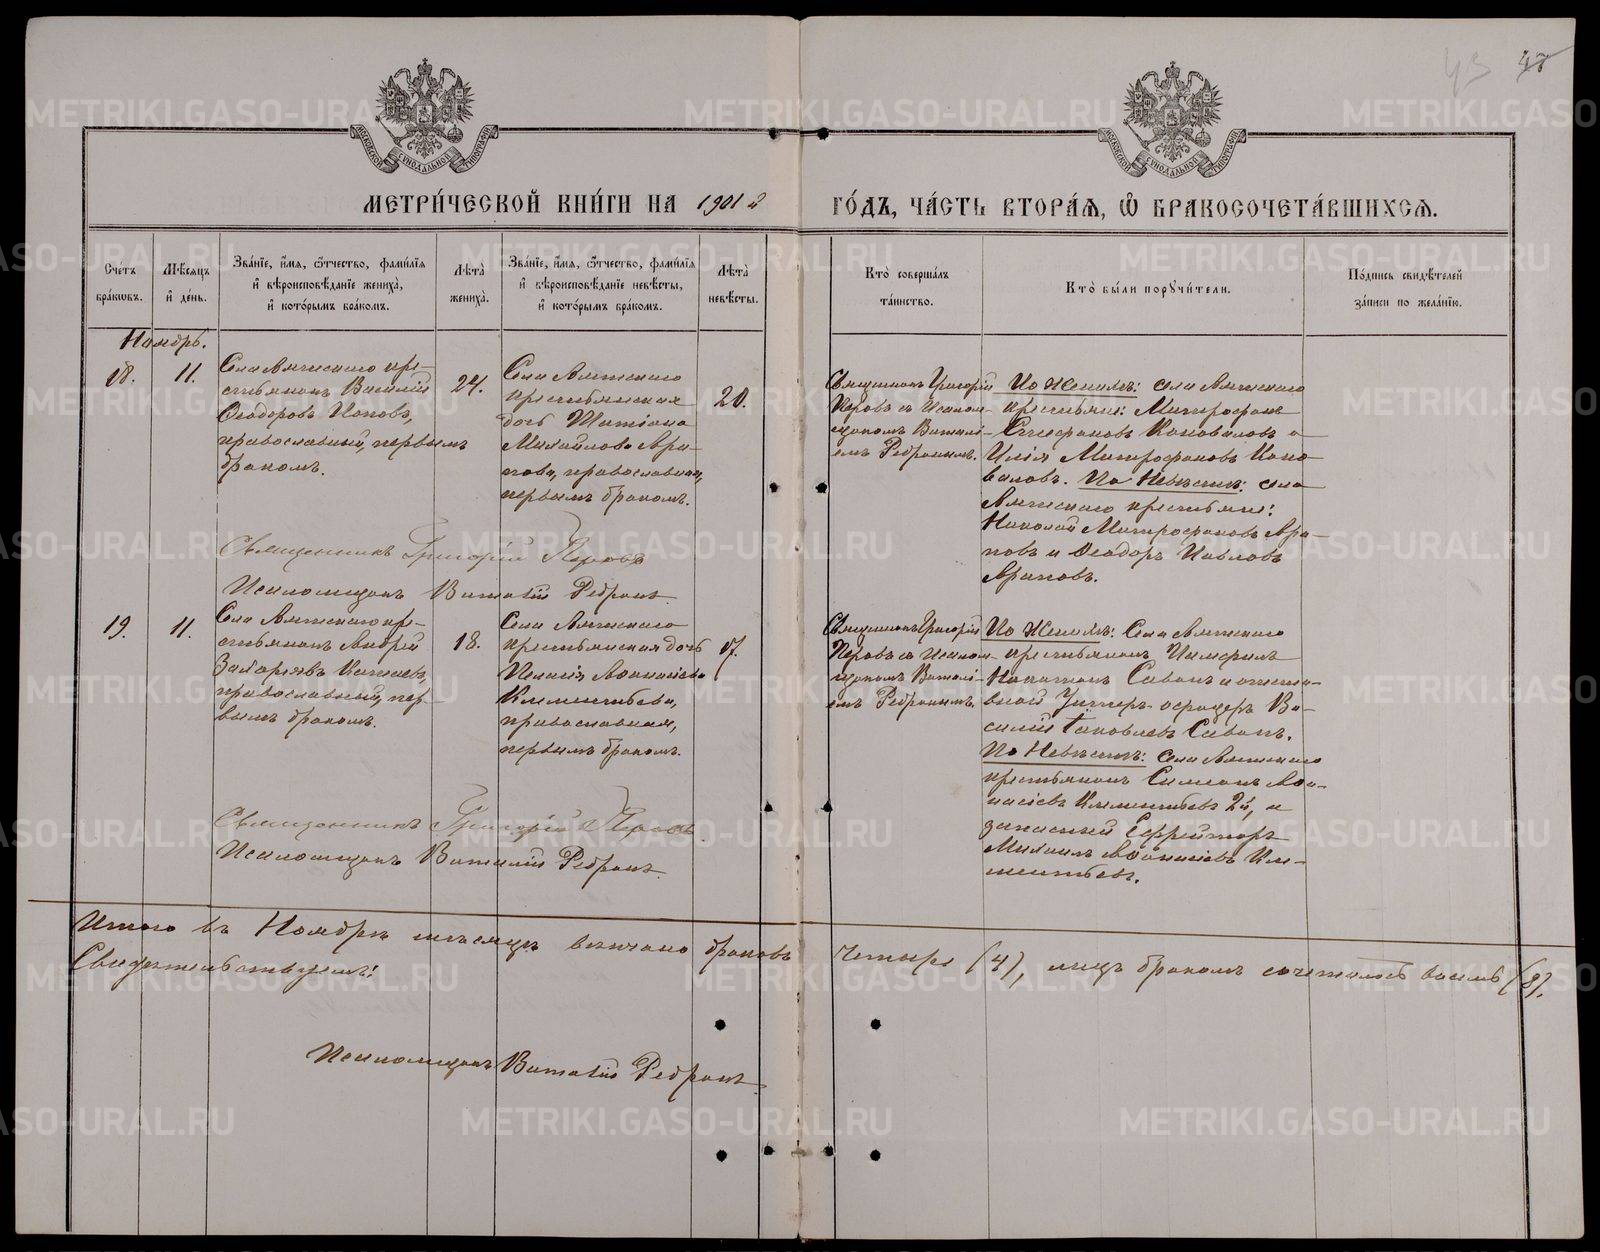 43 47
МОСКОВСКОЙ СѴНОДАЛЬНОЙ ТИПОГРАФІИ
МОСКОВСКОЙ СѴНОДАЛЬНОЙ ТИПОГРАФІИ
МЕТРИ́ЧЕСКОЙ КНИ́ГИ НА 1901 й ГО́ДЪ, ЧА́СТЬ ВТОРА́Я, Ѡ҆ БРАКОСОЧЕТА́ВШИХСЯ.
Сче́тъ бра́кѡвъ.
Мѣ́сяцъ и҆ де́нь.
Зва́нїе, и҆́мя, ѻ҆́тчество, фами́лїя и҆ вѣроисповѣ́данїе жениха̀, и҆ кото́рымъ бра́комъ.
Лѣта̀ жениха̀.
Зва́нїе, и҆́мя, ѻ҆́тчество, фами́лїя и҆ вѣроисповѣ́данїе невѣ́сты, и҆ кото́рымъ бра́комъ.
Лѣта̀ невѣ́сты.
Кто̀ соверша́лъ та́инство.
Кто̀ бы́ли порꙋчи́тели.
По́дпись свидѣ́телей за́писи по жела́нїю.
Ноябрь.
18.
11.
Села кре-
стьянинъ Василій
Ѳеодоровъ
православный, первымъ
бракомъ.
24.
Села
крестьянская
дочь Татіана
Михайлова Ара-
пова, православная,
первымъ бракомъ.
20.
Священникъ Григорій
Перовъ съ Псалом-
щикомъ Виталі-
емъ
По Женихѣ: села
крестьяне: Митрофанъ
Стефановъ Коноваловъ и
Илія Митрофановъ Коно-
валовъ. По Невѣстѣ: села
крестьяне:
Николай Митрофановъ Ара-
повъ и Ѳеодоръ Павловъ
Араповъ.
Священникъ Григорій Перовъ
Псаломщикъ Виталій
19.
11.
Села кре-
стьянинъ Андрей
Захаріевъ
православный, пер-
вымъ бракомъ.
18.
Села
крестьянская дочь
Пелагія Аѳанасіева
Климентьева,
православная,
первымъ бракомъ.
17.
Священникъ Григорій
Перовъ съ Псалом-
щикомъ Виталі-
емъ
По Женихѣ: Села
крестьянинъ Памфилъ
Савинъ и
Унтеръ-офицеръ Ва-
силій Іаковлевъ Савинъ.
По Невѣстѣ: села
крестьянинъ Симеонъ Аѳа-
насіевъ Климентьевъ 2й, и
запасный Ефрейторъ
Михаилъ Аѳанасіевъ Кли-
ментьевъ.
Священникъ Григорій Перовъ.
Псаломщикъ Виталій
Итого въ Ноябрѣ мѣсяцѣ вѣнчано браковъ четыре (4), лицъ бракомъ сочеталось восемь (8).
Свидѣтельствуемъ:
Псаломщикъ Виталій
METRIKI.GASO-URAL.RU